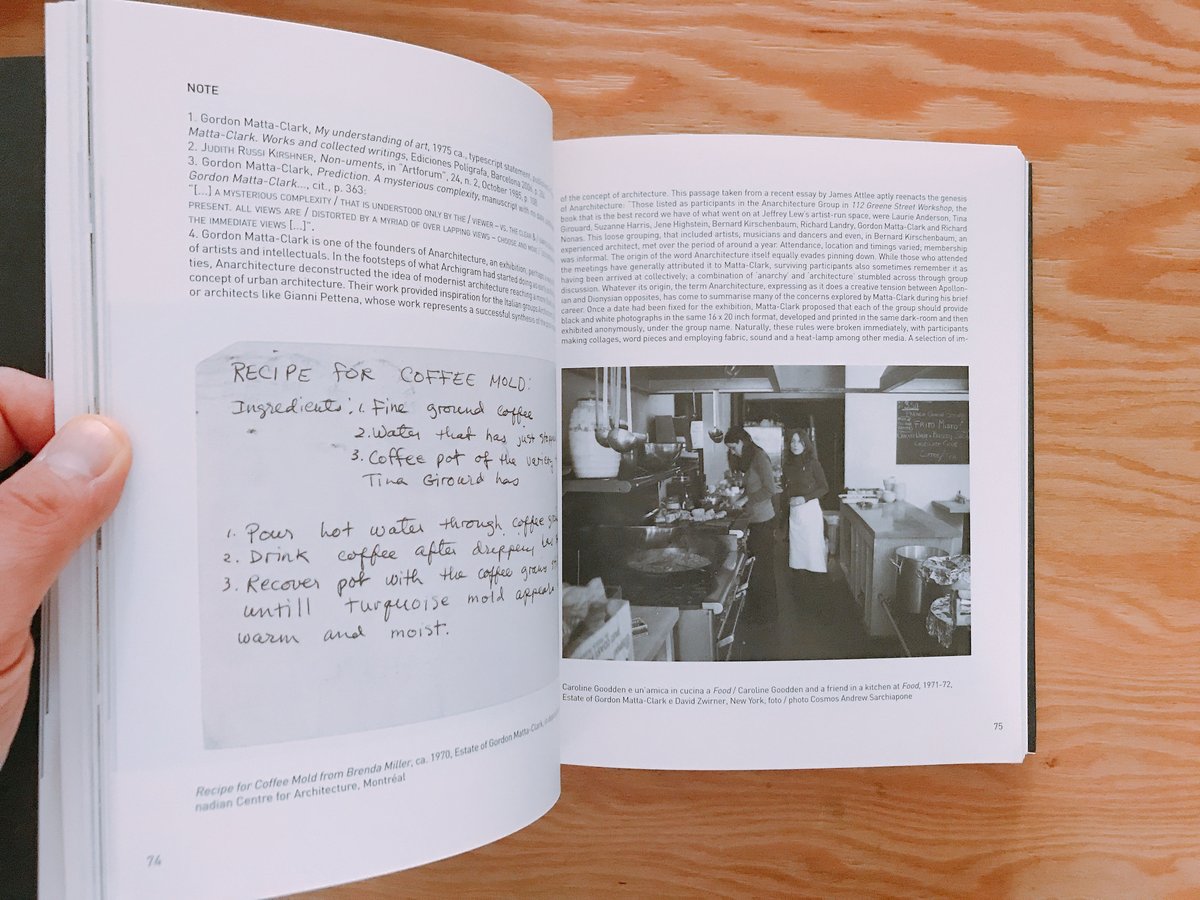 NOTE
1. Gordon Matta-Clark, My understanding of art, 1975 ca., typescript statement,
Matta-Clark. Works and collected writings, Ediciones Polígrafa, Barcelona
2. JUDITH RUSSI KIRSHNER, Non-uments, in "Artforum", 24, n. 2, October 1985, p. 108
3. Gordon Matta-Clark, Prediction. A mysterious complexity, manuscript with
Gordon Matta-Clark..., cit., p. 363:
"[...] A MYSTERIOUS COMPLEXITY / THAT IS UNDERSTOOD ONLY BY THE / VIEWER – VS. THE CLEAR &
PRESENT. ALL VIEWS ARE / DISTORTED BY A MYRIAD OF OVER LAPPING VIEWS – CHOOSE AND
THE IMMEDIATE VIEWS [...]".
4. Gordon Matta-Clark is one of the founders of Anarchitecture, an exhibition, perhaps
of artists and intellectuals. In the footsteps of what Archigram had started doing
ties, Anarchitecture deconstructed the idea of modernist architecture reaching a more
concept of urban architecture. Their work provided inspiration for the Italian groups
or architects like Gianni Pettena, whose work represents a successful synthesis of the
RECIPE FOR COFFEE MOLD:
Ingredients: 1. Fine ground coffee
2. Water that has just
3. Coffee pot of the variety
Tina Girouard has
1. Pour hot water through coffee
2. Drink coffee after dripping
3. Recover pot with the coffee
untill turquoise mold appears
warm and moist.
Recipe for Coffee Mold from Brenda Miller, ca. 1970, Estate of Gordon Matta-Clark,
nadian Centre for Architecture, Montréal
74
of the concept of architecture. This passage taken from a recent essay by James Attlee aptly reenacts the genesis
of Anarchitecture: "Those listed as participants in the Anarchitecture Group in 112 Greene Street Workshop, the
book that is the best record we have of what went on at Jeffrey Lew's artist-run space, were Laurie Anderson, Tina
Girouard, Suzanne Harris, Jene Highstein, Bernard Kirschenbaum, Richard Landry, Gordon Matta-Clark and Richard
Nonas. This loose grouping, that included artists, musicians and dancers and even, in Bernard Kirschenbaum, an
experienced architect, met over the period of around a year. Attendance, location and timings varied, membership
was informal. The origin of the word Anarchitecture itself equally evades pinning down. While those who attended
the meetings have generally attributed it to Matta-Clark, surviving participants also sometimes remember it as
having been arrived at collectively; a combination of 'anarchy' and 'architecture' stumbled across through group
discussion. Whatever its origin, the term Anarchitecture, expressing as it does a creative tension between Apollson-
ian and Dionysian opposites, has come to summarise many of the concerns explored by Matta-Clark during his brief
career. Once a date had been fixed for the exhibition, Matta-Clark proposed that each of the group should provide
black and white photographs in the same 16 x 20 inch format, developed and printed in the same dark-room and then
exhibited anonymously, under the group name. Naturally, these rules were broken immediately, with participants
making collages, word pieces and employing fabric, sound and a heat-lamp among other media. A selection of im-
FRITO MISTO
Caroline Goodden e un'amica in cucina a Food / Caroline Goodden and a friend in a kitchen at Food, 1971-72,
Estate of Gordon Matta-Clark e David Zwirner, New York, foto / photo Cosmos Andrew Sarchiapone
75